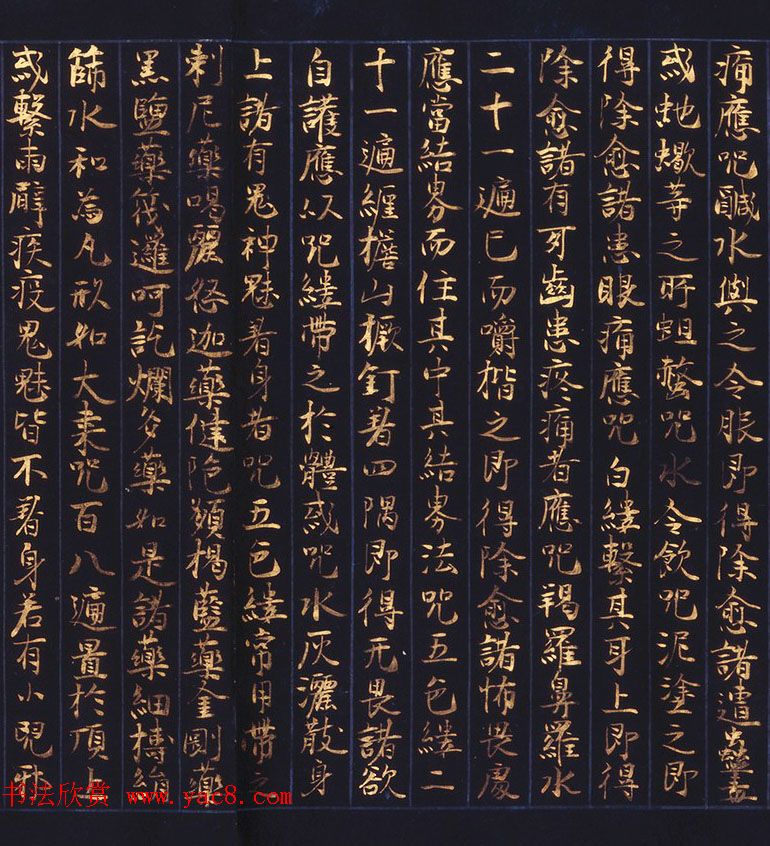 痛應咒鹹水與之令服即得除愈諸遭蠱毒
或虵蠍等之所蛆螫咒水令飲咒泥塗之即
得除愈諸患眼痛應咒白縷繫其耳上即得
除愈諸有牙齒患疼痛者應咒羯羅鼻羅水
二十一遍已而嚼楷之即得除愈諸怖畏處
應當結界而住其中其結界法咒五色縷二
十一遍纏擔山橛釘著四隅即得无畏諸欲
自護應以咒縷帶之於體或咒水灰灑散身
上諸有鬼神魅著身者咒五色縷常用帶之
剌尼藥喝麗怒迦藥健陀頞楊藍藥金剛藥
黑鹽藥筏邏呵訖爛多藥如是諸藥細擣絹
篩水和為丸形如大棗咒百八遍置於頂上
或繫兩臂疾疫鬼魅皆不著身若有小兒
书法欣赏 www.yac8.com